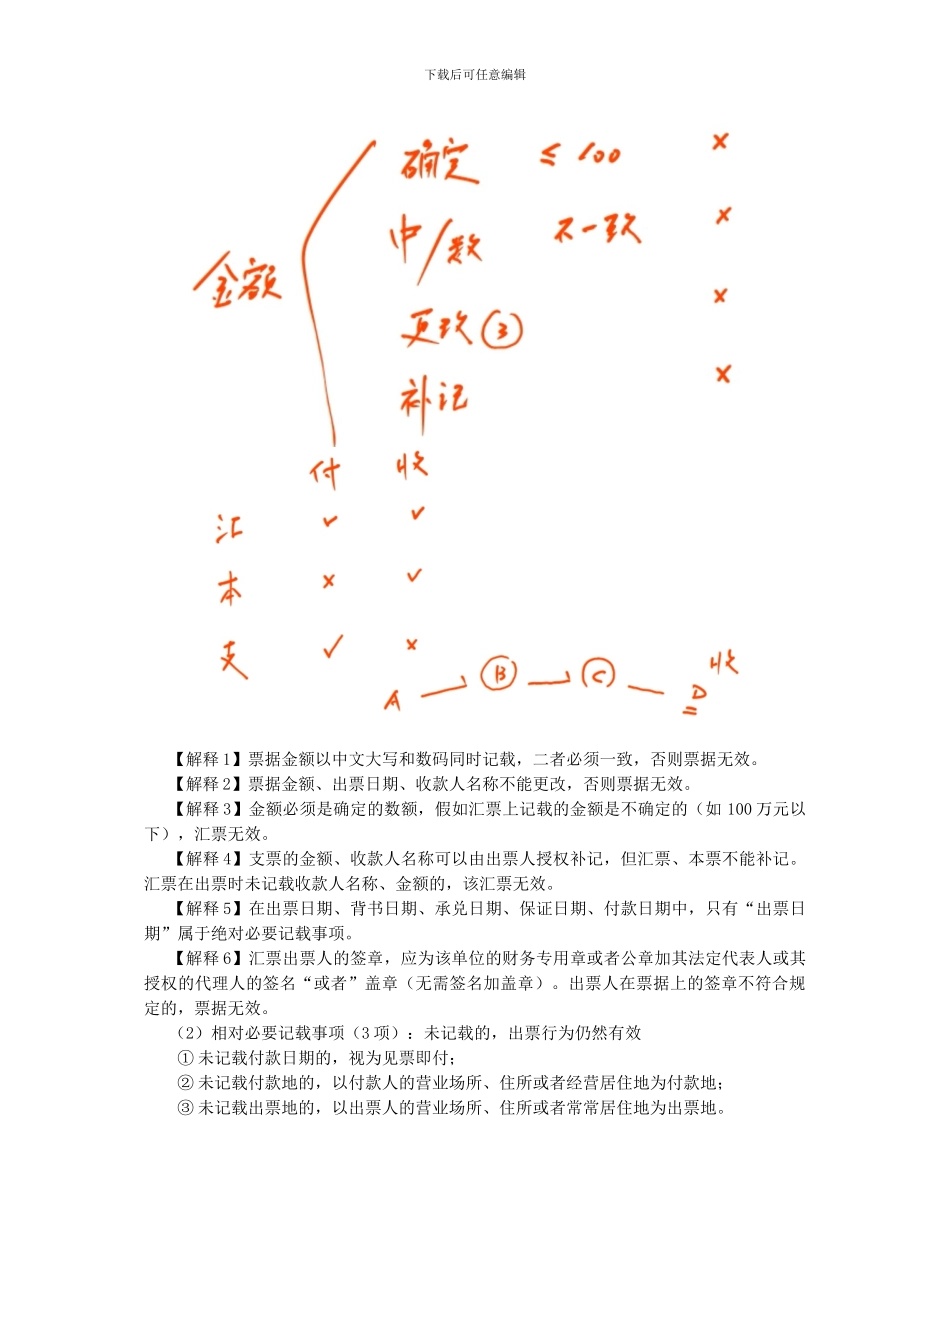 下载后可任意编辑
确定 ≤100 ×
中/数 不一致 ×
金额
更改③ ×
补记 ×
付 收
汇 ✓ ✓
本 × ✓
支 ✓ ×
收
A → B → C — D
【解释 1】票据金额以中文大写和数码同时记载，二者必须一致，否则票据无效。
【解释 2】票据金额、出票日期、收款人名称不能更改，否则票据无效。
【解释 3】金额必须是确定的数额，假如汇票上记载的金额是不确定的（如 100 万元以
下），汇票无效。
【解释 4】支票的金额、收款人名称可以由出票人授权补记，但汇票、本票不能补记。
汇票在出票时未记载收款人名称、金额的，该汇票无效。
【解释 5】在出票日期、背书日期、承兑日期、保证日期、付款日期中，只有“出票日
期”属于绝对必要记载事项。
【解释 6】汇票出票人的签章，应为该单位的财务专用章或者公章加其法定代表人或其
授权的代理人的签名“或者”盖章（无需签名加盖章）。出票人在票据上的签章不符合规
定的，票据无效。
（2）相对必要记载事项（3 项）：未记载的，出票行为仍然有效
① 未记载付款日期的，视为见票即付；
② 未记载付款地的，以付款人的营业场所、住所或者经营居住地为付款地；
③ 未记载出票地的，以出票人的营业场所、住所或者常常居住地为出票地。